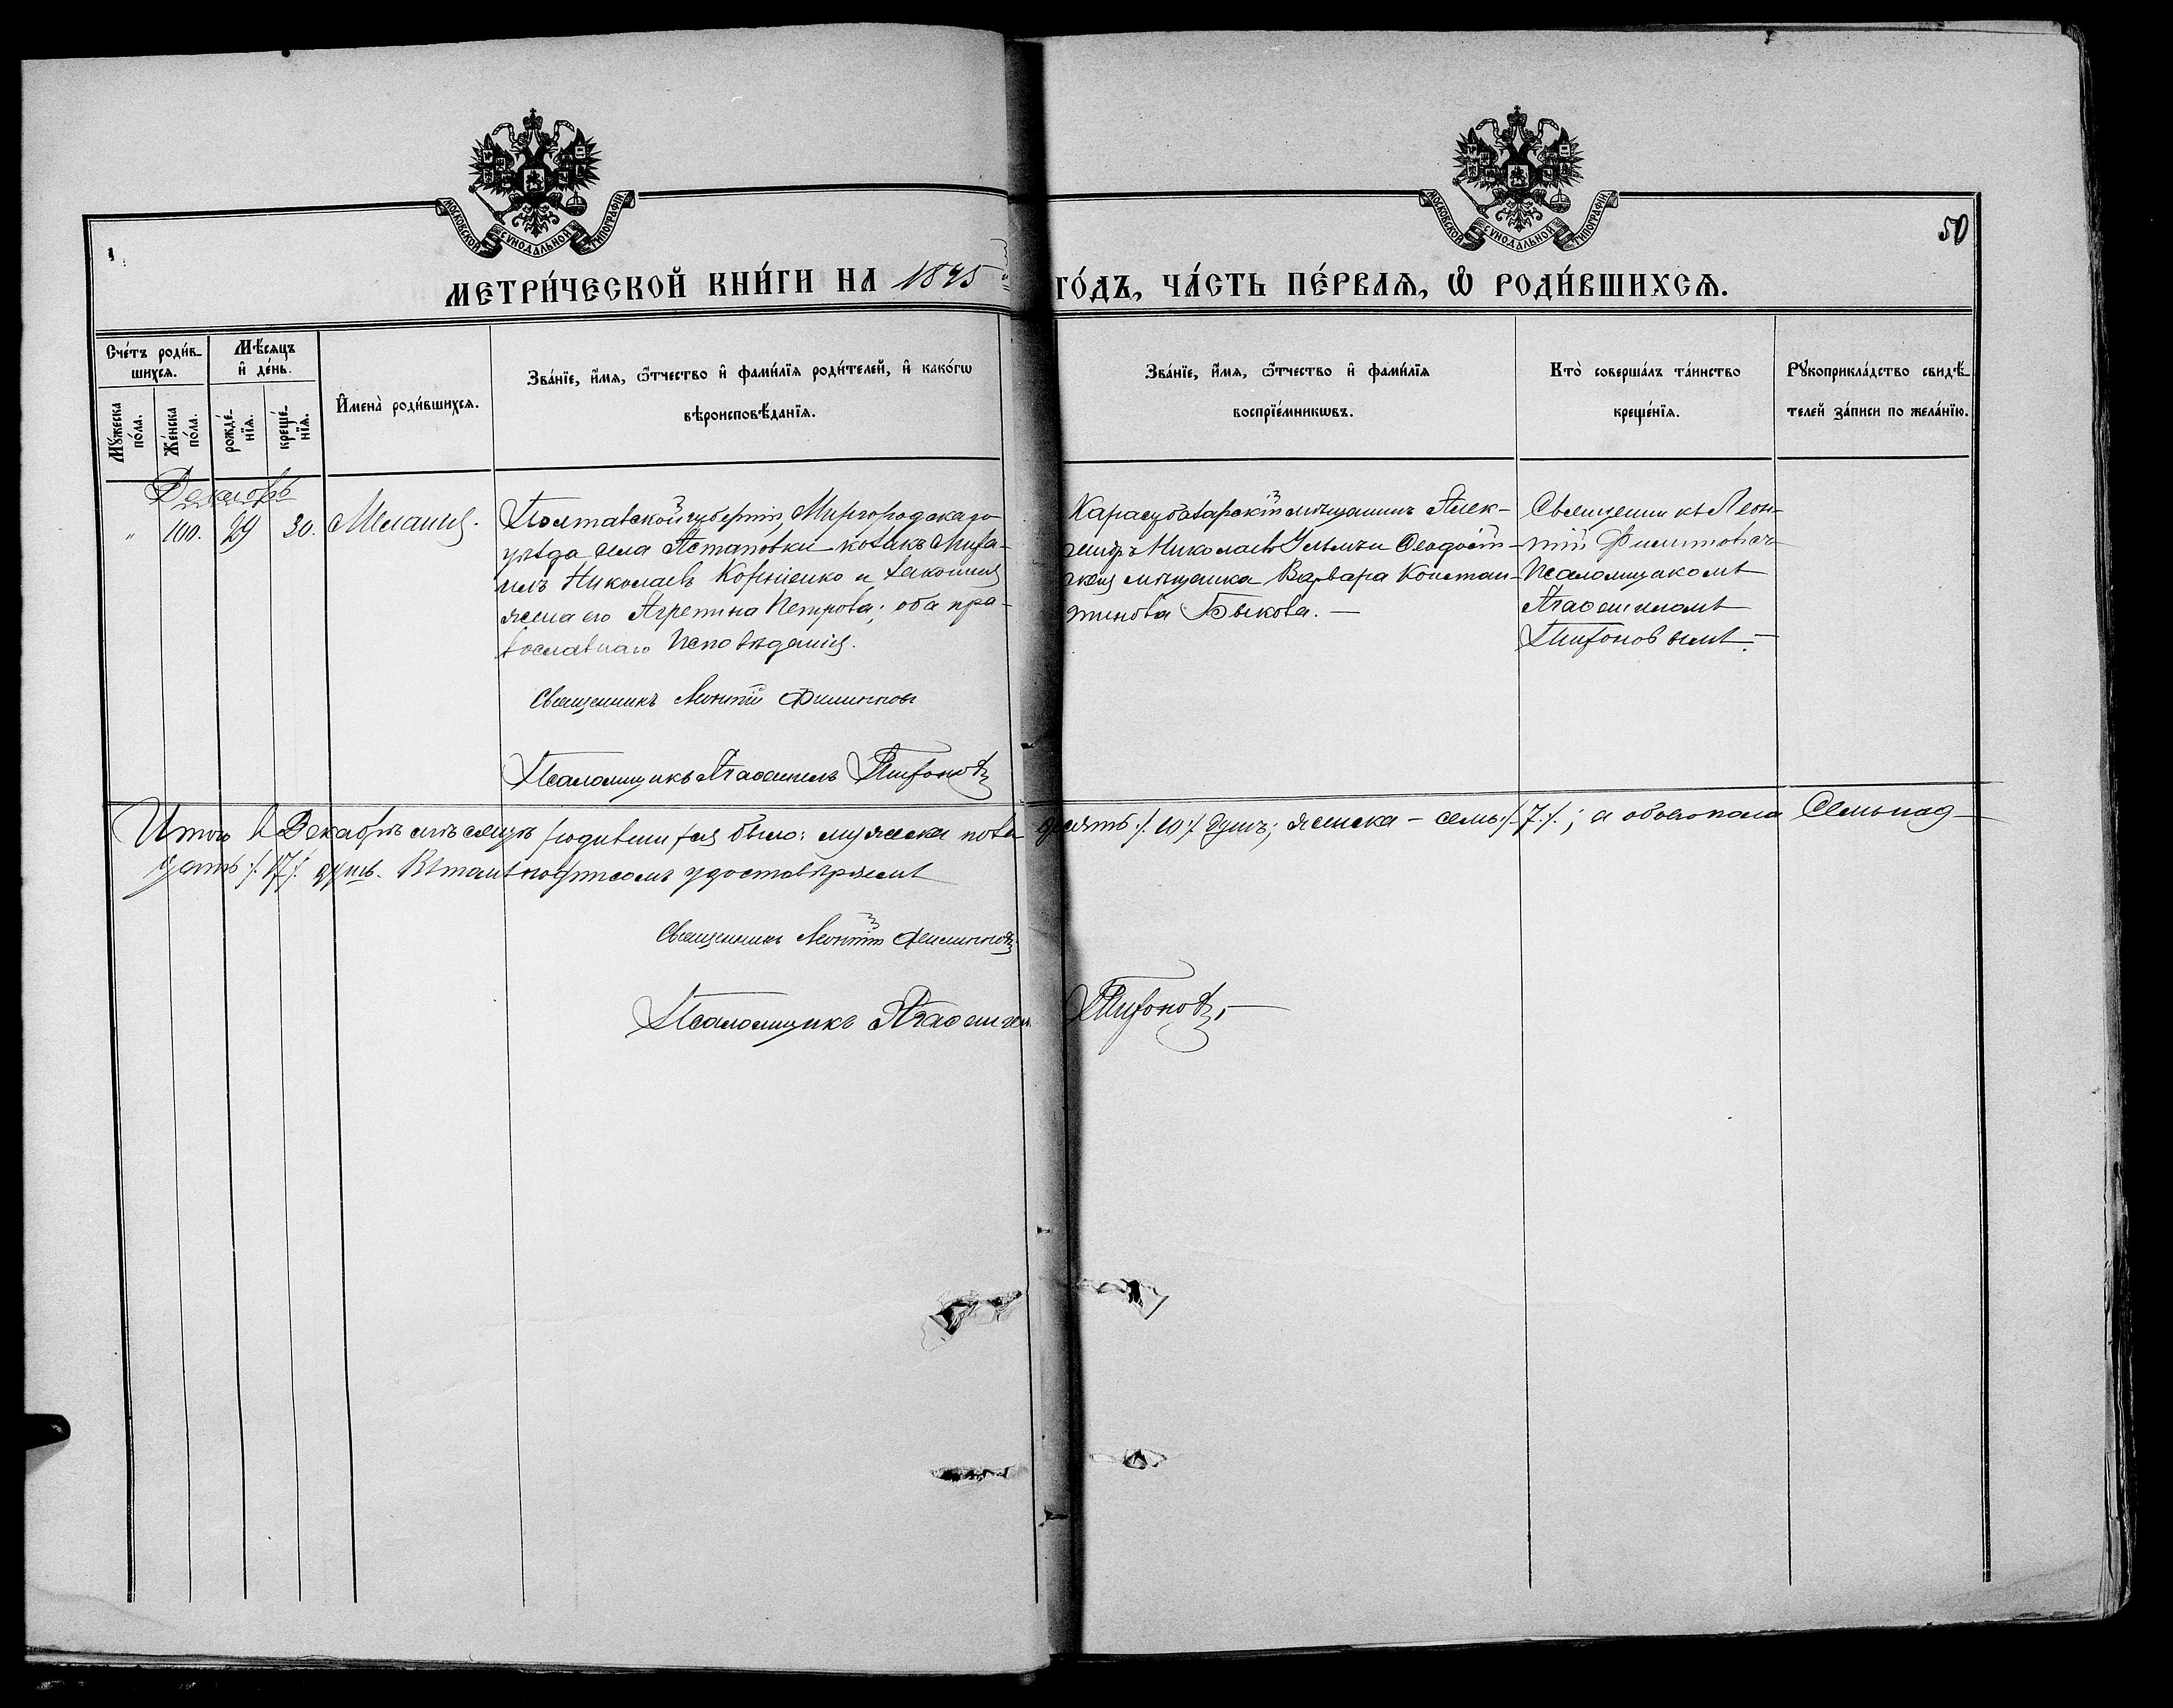 МОСКОВСКОЙ СУНОДАЛЬНОЙ ТИПОГРАФІИ.
МОСКОВСКОЙ СУНОДАЛЬНОЙ ТИПОГРАФІИ.
50
МЕТРИ́ЧЕСКОЙ КНИ́ГИ НА 1895 ГО́ДЪ, ЧА́СТЬ ПЕ́РВАѦ, Ѡ РОДИ́ВШИХСѦ.
Сче́тъ роди́в-
шихсѧ.
Мѣ́сѧцъ
и҆ де́нь.
Мꙋ́жеска по́ла.
Же́нска по́ла.
рожде́-
нїѧ.
креще́-
нїѧ.
И҆мена̀ роди́вшихсѧ.
Зва́нїе, и҆́мѧ, ѻ҆́тчество и҆ фами́лїѧ роди́телей, и҆ како́гѡ
вѣроисповѣ́данїѧ.
Зва́нїе, и҆́мѧ, ѻ҆́тчество и҆ фами́лїѧ
воспрїе́мникѡвъ.
Кто̀ соверша́лъ та́инство
креще́нїѧ.
Рꙋкоприкла́дство свидѣ́-
телей за́писи по жела́нїю.
Декабрь
" 100. 29 30. Меланія.
Полтавской губерніи, Миргородскаго
уѣзда села Остаповки козакъ Миха-
илъ Николаевъ Корніенко и законная
жена его Агрепина Петрова; оба пра-
вославнаго Исповѣданія.
Священникъ Леонтій Филиппов
Псаломщикъ Агаѳангелъ Тихоновъ
Карасубазарскій мѣщанинъ Алек-
сандръ Николаевъ и Ѳеодосій-
ская мѣщанка Варвара Констан-
тинова Быкова. —
Священникъ Леон-
тій Филипповъ съ
Псаломщикомъ
Агаѳангеломъ
Тихоновымъ. —
Итого въ Декабрѣ мѣсяцѣ родившихся было: мужеска пола десять /. 10 /. душъ; женска - семь /. 7 /.; а обоего пола Семьнад-
цать /. 17 /. душъ. Въ томъ подписомъ удостовѣряемъ
Священникъ Леонтій Филипповъ
Псаломщикъ Агаѳангелъ Тихоновъ. —